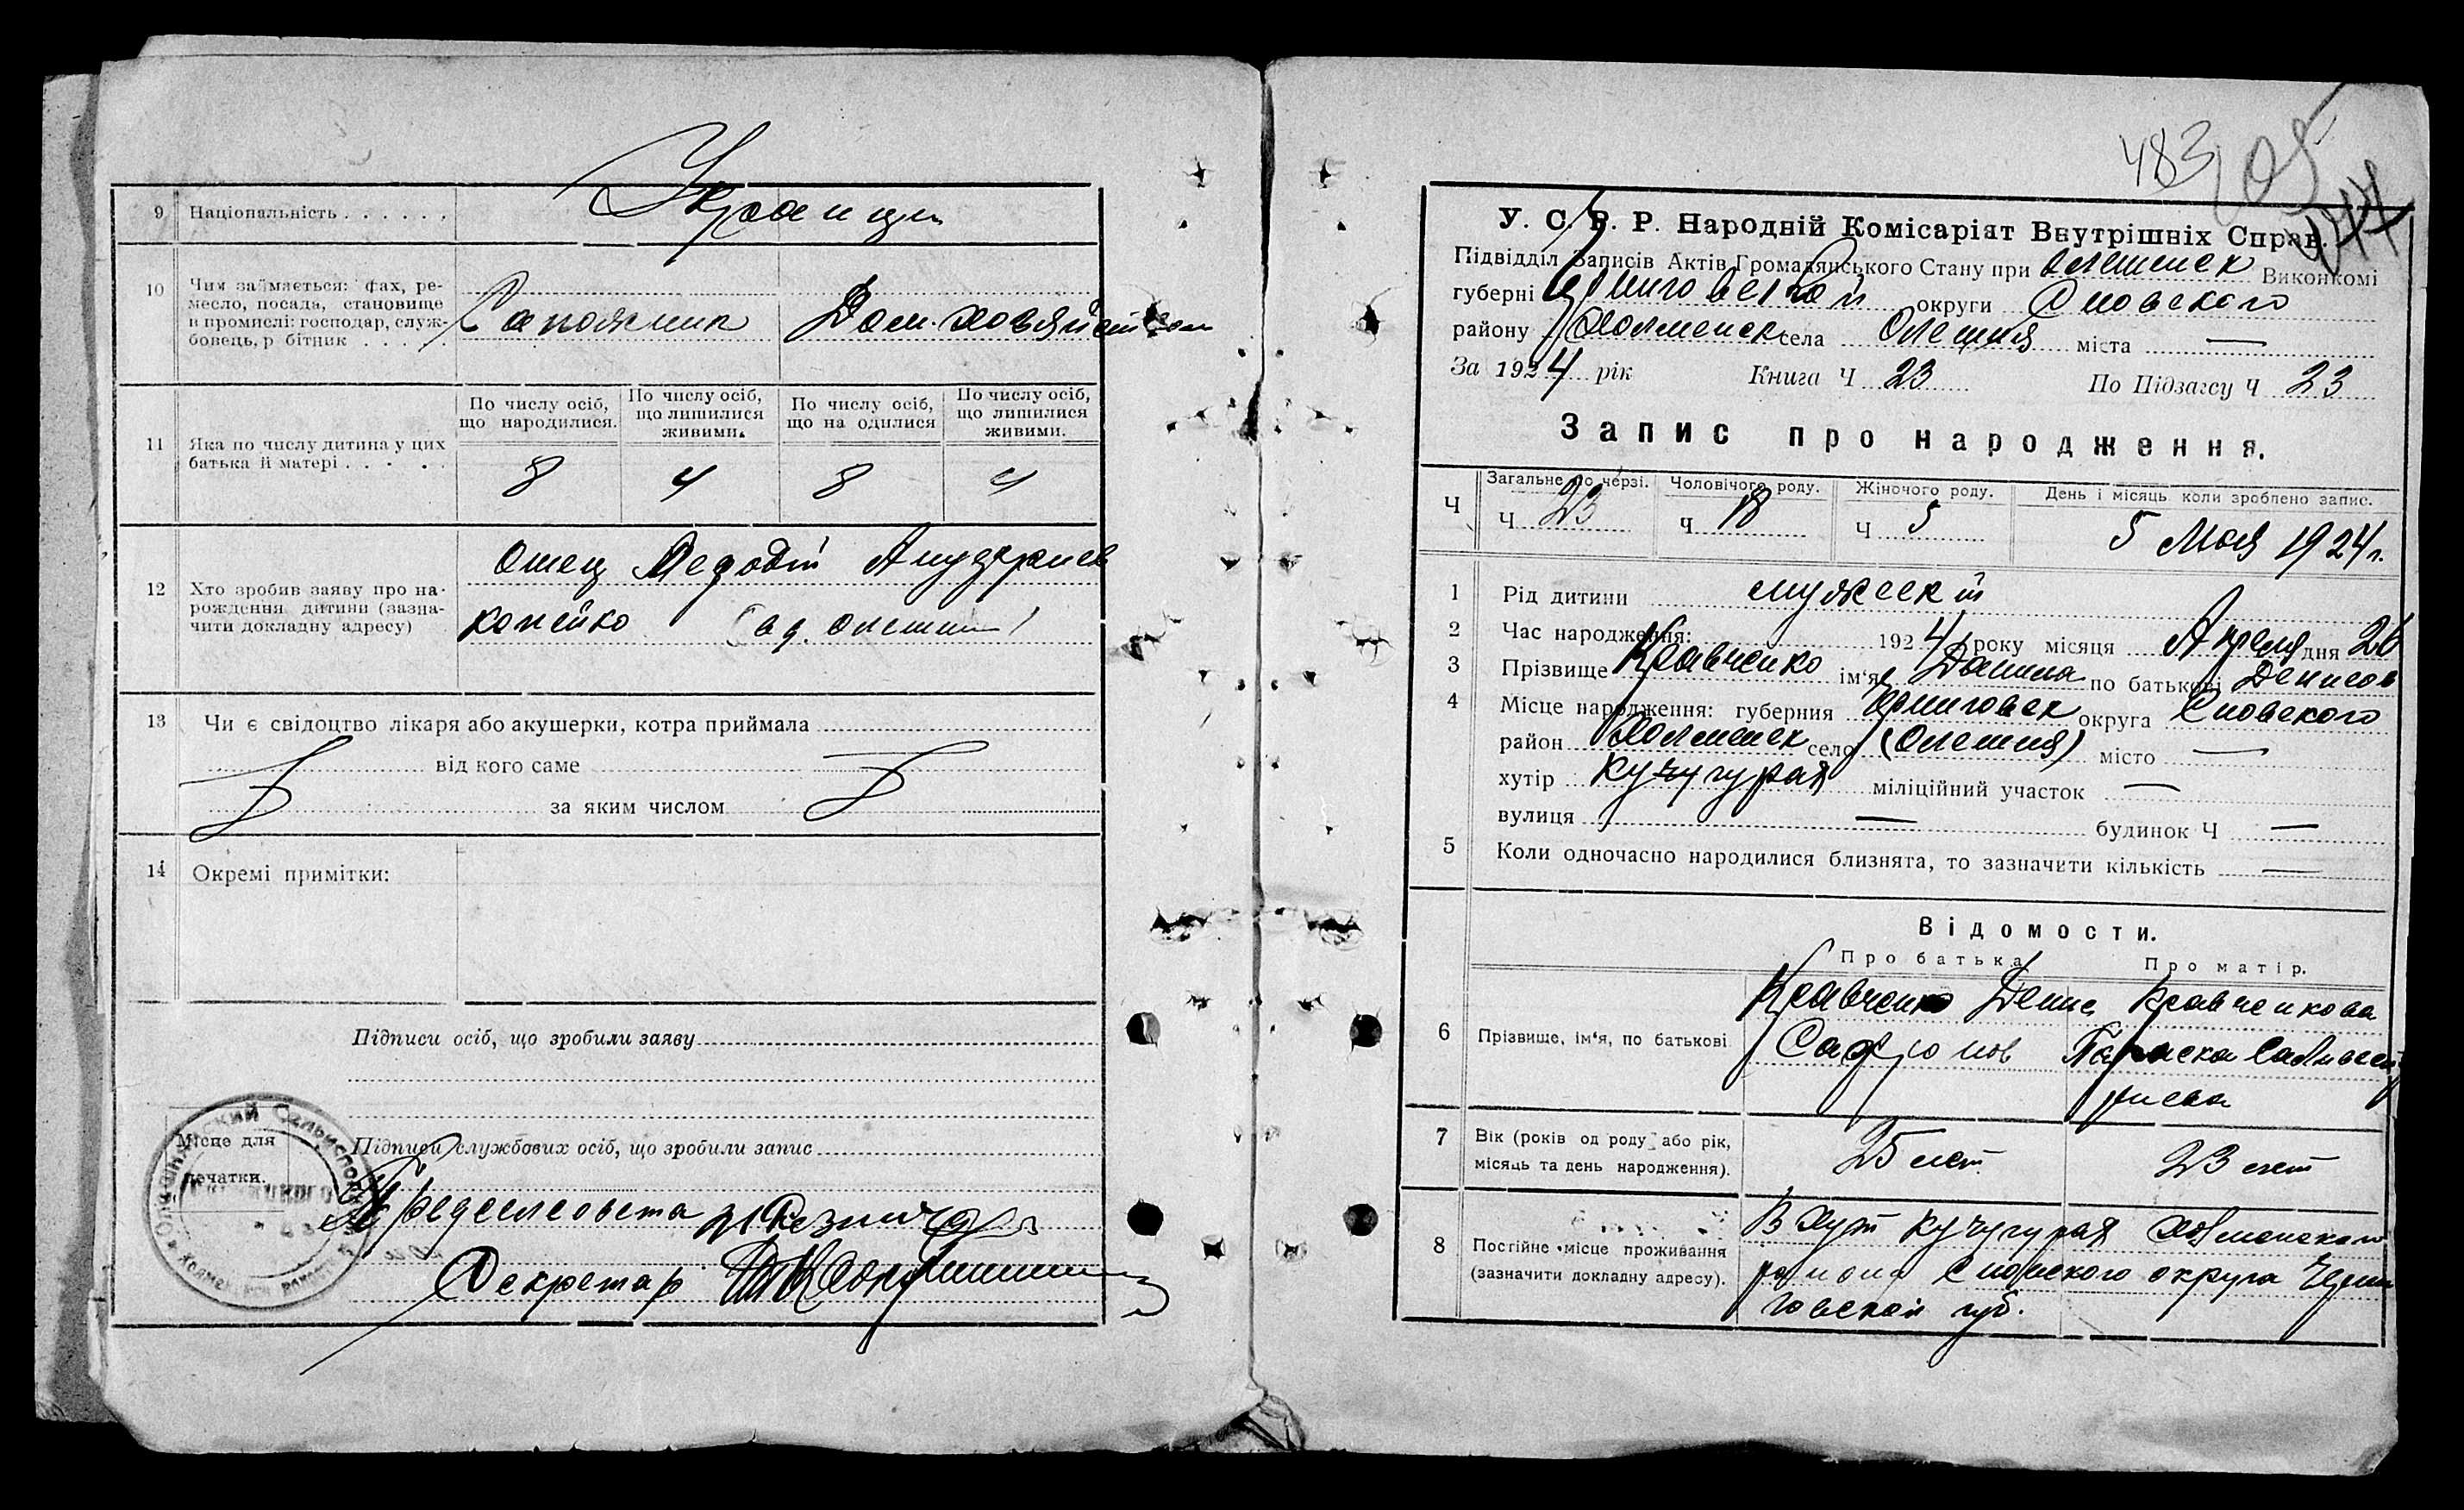 9 Національність . . . . . .
Украинцы
10 Чим займається: фах, ре-
месло, посада, становище
в промислі: господар, служ-
бовець, р бітник . . . . .
Сапожник Дом. хозяйством
11 Яка по числу дитина у цих
батька й матері . . . . .
По числу осіб,
що народилися.
По числу осіб,
що лишилися
живими.
По числу осіб,
що на одилися
По числу осіб,
що лишилися
живими.
8 4 8 4
12 Хто зробив заяву про на-
рождення дитини (зазна-
чити докладну адресу)
Отец
13 Чи є свідоцтво лікаря або акушерки, котра приймала
від кого саме
за яким числом
14 Окремі примітки:
Підписи осіб, що зробили заяву
Місце для
печатки.
Підписи службових осіб, що зробили запис
Предсельсовета
Секретар
483
У. С. Р. Р. Народній Комісаріят Внутрішніх Справ.
Підвідділ Записів Актів Громадянського Стану при Олешнек Виконкомі
губерні Черниговской округи Сновского
району Холменск села Олешня міста —
За 1924 рік Книга Ч 23 По Підзагсу Ч 23
Запис про народження.
Ч Загальне по черзі. Чоловічого роду. Жіночого роду. День і місяць коли зроблено запис.
Ч 23 Ч 18 Ч 5 5 Мая 1924 г.
1 Рід дитини мужеский
2 Час народження: 1924 року місяця Апреля дня 26
3 Прізвище Кравченко ім'я Данила по батькові Денисов
4 Місце народження: губерния Черниговск округа Сновского
район Холменск село (Олешня) місто —
хутір Кучугурах міліційний участок —
вулиця — будинок Ч —
5 Коли одночасно народилися близнята, то зазначити кількість —
Відомости.
Про батька Про матір.
6 Прізвище, ім'я, по батькові
Кравченко Денис Кравченкова
Сафронов Параска
7 Вік (років од роду або рік,
місяць та день народження).
25 лет 23 лет
8 Постійне місце проживання
(зазначити докладну адресу).
В хут Кучугурах Холменского
района Сновского округа Черни
говской губ.